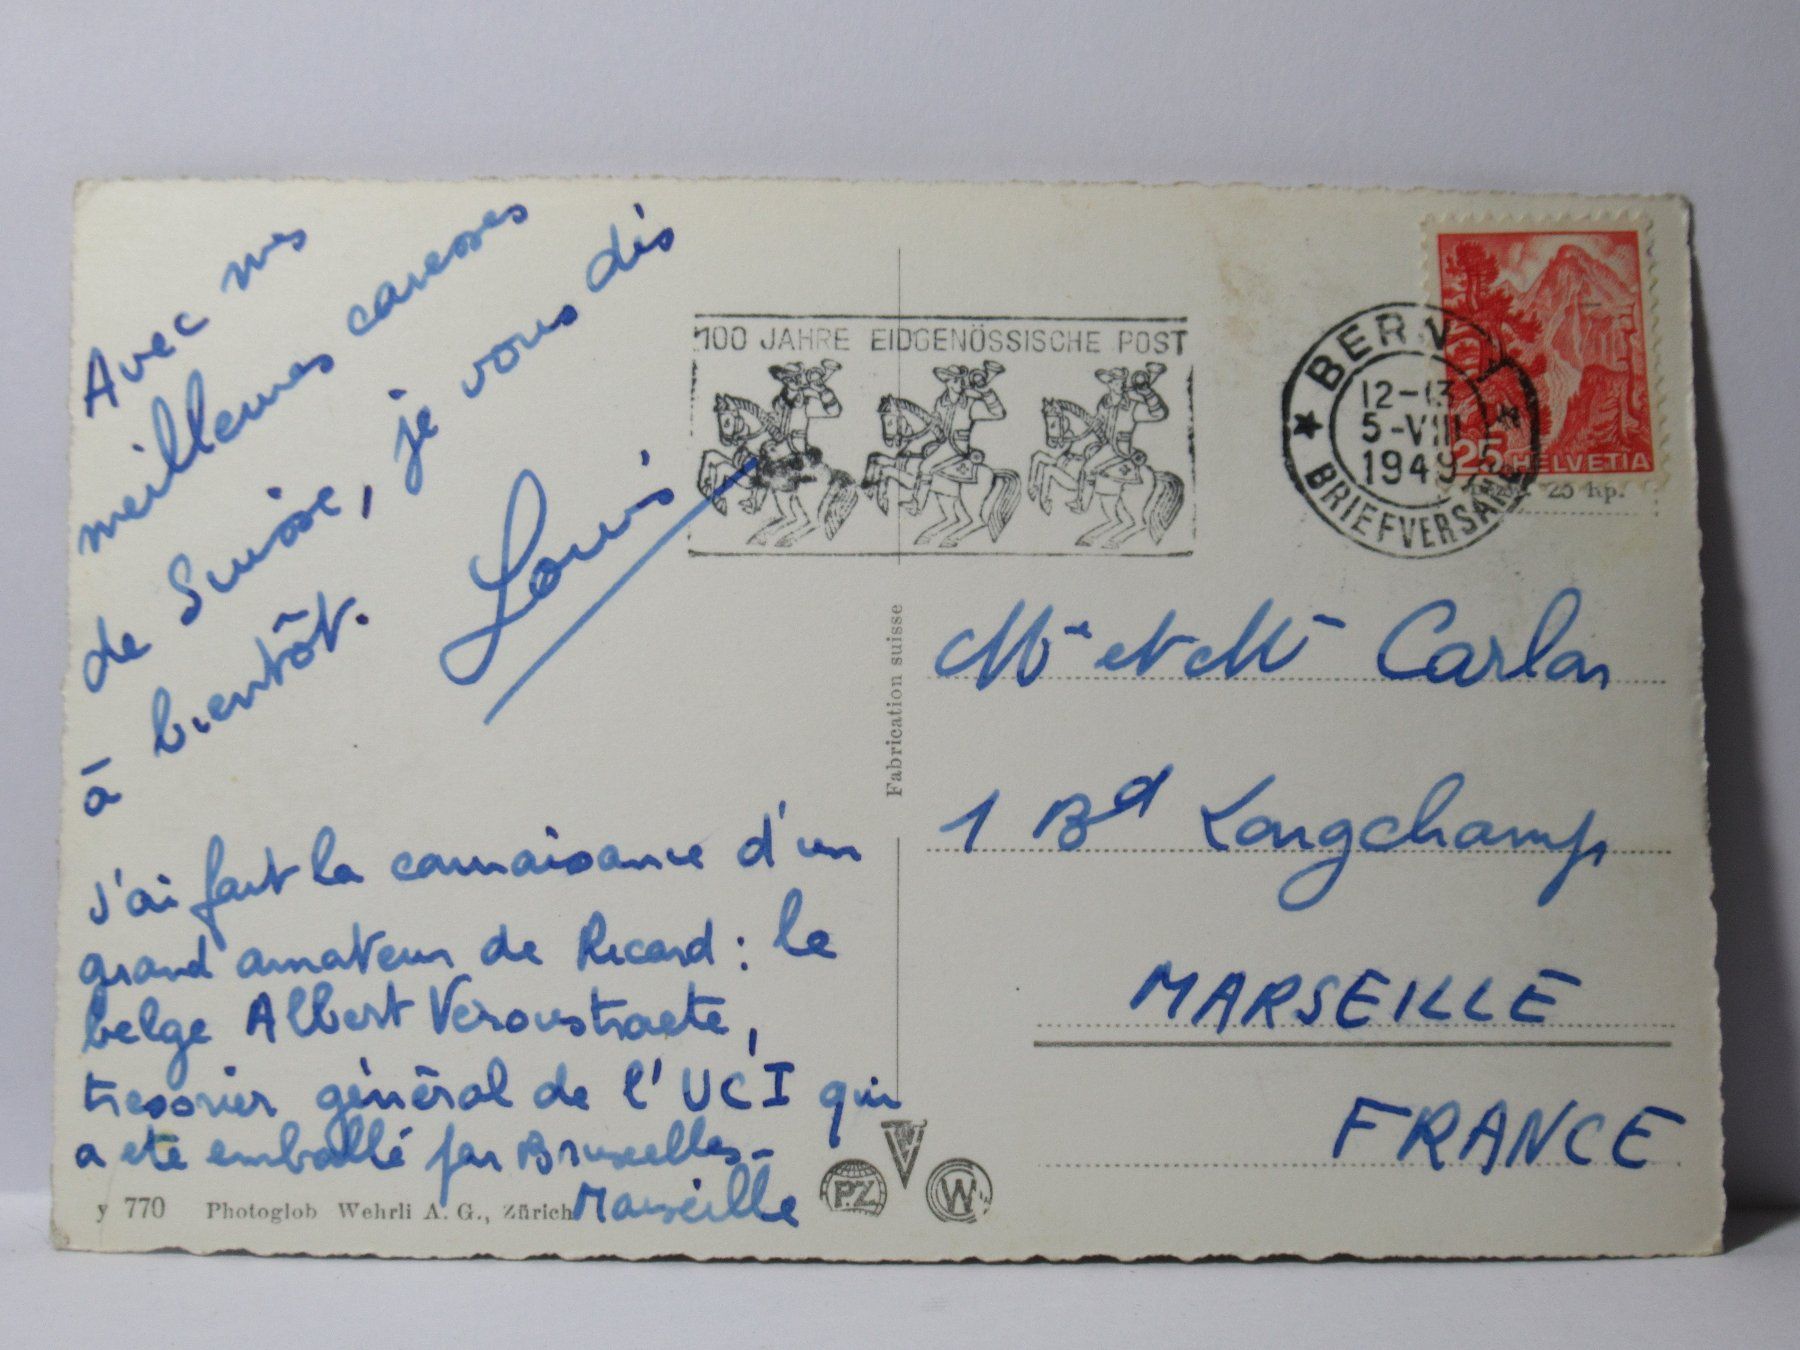 Avec mes
meilleures caresses
de Suisse, je vous dis
à bientôt.
Louis
J'ai fait la connaissance d'un
grand amateur de Ricard : le
belge Albert Veroustraete,
tresorier général de l'UCI qui
a ete emballé par Bruxelles-
Marseille
y 770 Photoglob Wehrli A. G., Zürich
Fabrication suisse
P.Z
W
100 JAHRE EIDGENÖSSISCHE POST
BERN 1
12-13
5-VIII
1949
BRIEFVERSAND
25 HELVETIA
25 Rp.
Me et Mr Carlon
1 Bd Longchamp
MARSEILLE
FRANCE